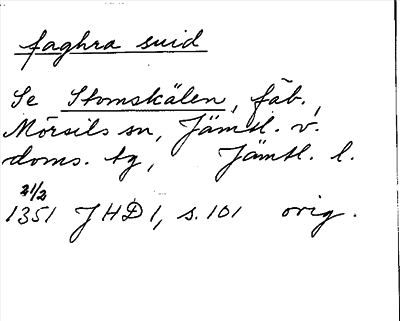 faghra suid
Se Stomskälen, fäb.,
Mörsils sn, Jämtl. v.
doms. tg, Jämtl. l.
21/2
1351 JHD1, s. 101 orig.